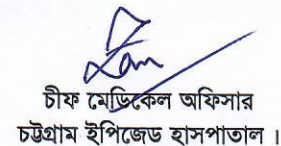 চীফ মেডিকেল অফিসার
চট্টগ্রাম ইপিজেড হাসপাতাল।